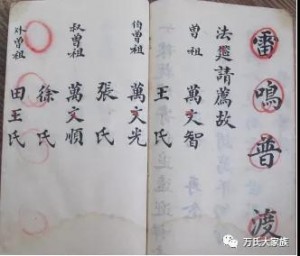 雷鳴普渡
法邀請薦故
曾祖 萬文智
王氏
伯曾祖 萬文光
張氏
叔曾祖 萬文順
徐氏
外曾祖 田王氏
万氏大家族